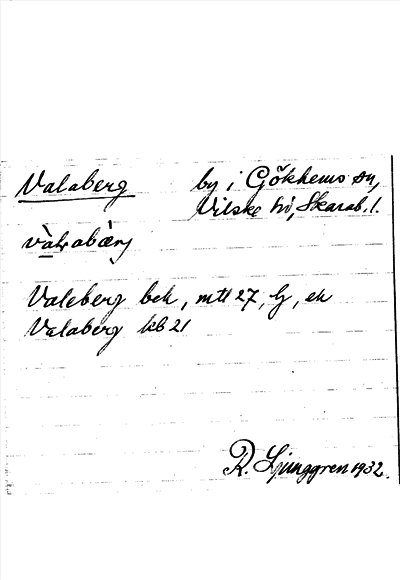 Valaberg by i Gökhems sn,
Vilske hd, Skarab. l.
Valeberg bek, mtl 27, lj, ek
Valaberg kb 21
R. Ljunggren 1932.